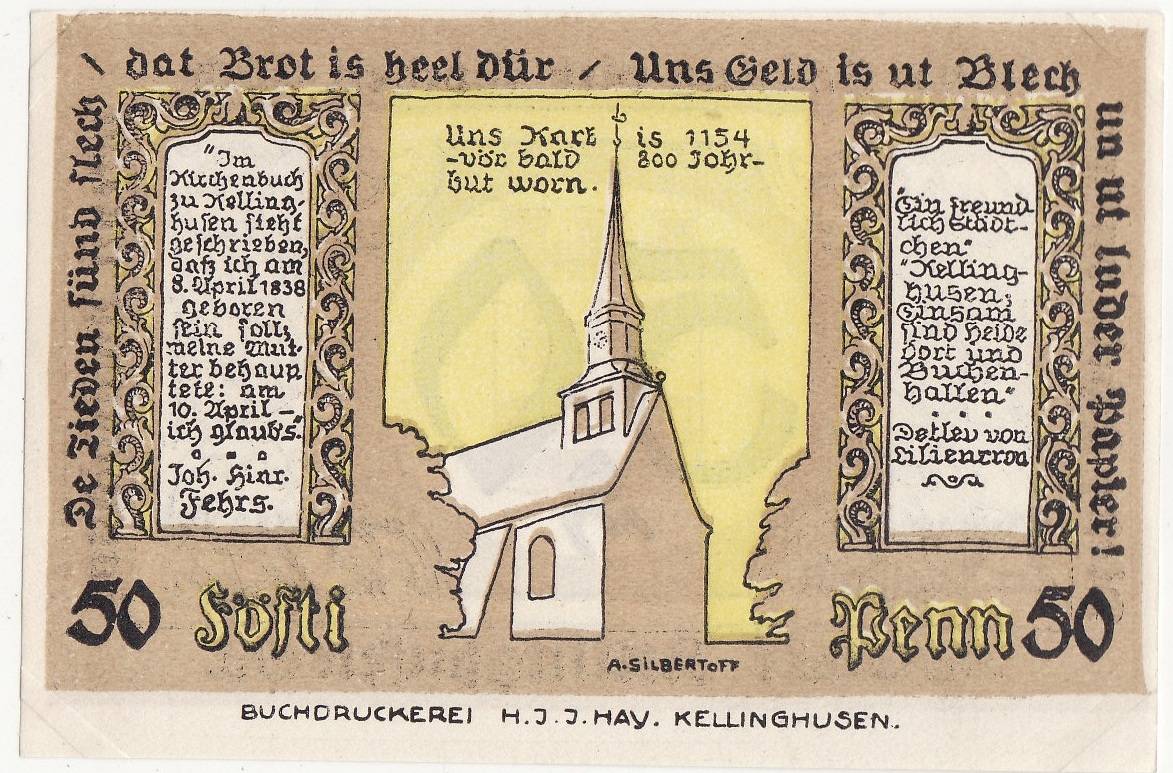 De Tieden sünd slech / dat Brot is heel dür / Uns Geld is ut Blech
un ut luder Papier!
"Im
Kirchenbuch
zu Kelling-
husen steht
geschrieben,
daß ich am
8. April 1838
geboren
sein soll;
meine Mut-
ter behaup
tete: am
10. April –
ich glaub's."
Joh. Hinr.
Fehrs.
Uns Kark is 1154
-vör bald 800 Johr-
but worn.
"Ein freund
lich Städt-
chen"
"Kelling-
husen;
Einsam
sind Heide
dort und
Buchen-
hallen"
Detlev von
Liliencron
50 Fösti Penn 50
A. SILBERTOFF
BUCHDRUCKEREI H.J.J. HAY. KELLINGHUSEN.